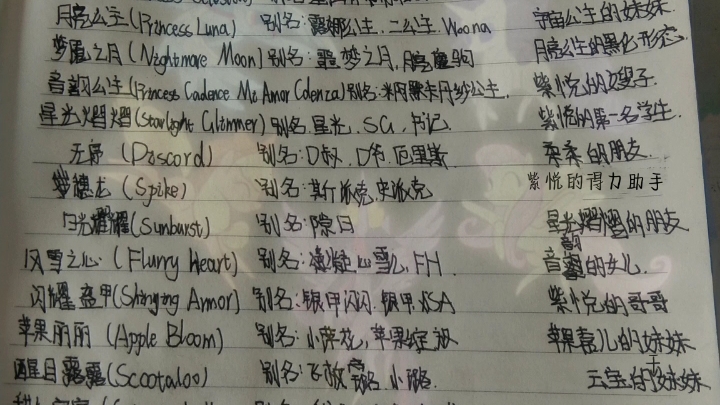 月亮公主(Princess Luna) 别名:露娜公主、二公主、Woona 宇宙公主的妹妹.
梦魇之月(Nightmare Moon)别名:噩梦之月,月亮魔驹 月亮公主的黑化形态.
音韵公主(Princess Cadence Mi Amor Cadenza)别名: 紫悦的嫂子
星光熠熠(Starlight Glimmer)别名.星光、SG、书记 紫悦的第一名学生.
无序(Discord) 别名:D叔、D爷、厄里斯 柔柔的朋友.
穗德龙(Spike) 别名:斯派克,史派克 紫悦的得力助手
日光耀耀(Sunburst) 别名: 星光熠熠的朋友
风雪之心(Flurry Heart) 别名: FH. 音韵的女儿.
闪耀盔甲(Shining Armor) 别名:银甲闪闪、银甲、SA 紫悦的哥哥
苹果丽丽(Apple Bloom) 别名:小萍花,苹果绽放 苹果嘉儿的妹妹
醒目露露(Scootaloo) 别名:飞板 小璐. 云宝的妹妹